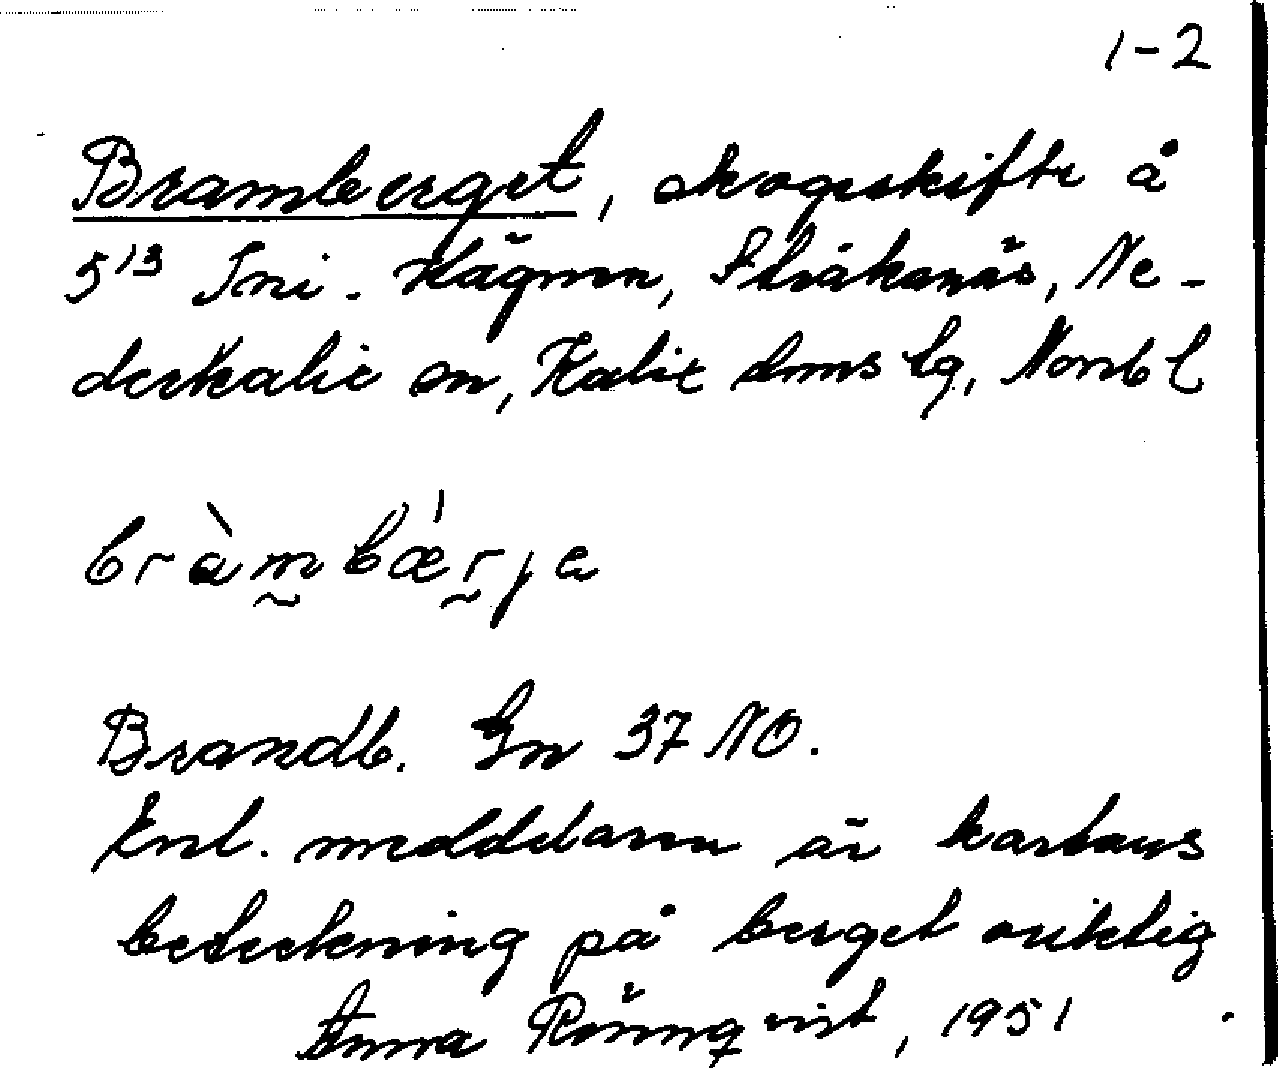 1-2
Bramberget, skogsskifte å
5¹³ Sni. Hägnan, Stråkanäs, Ne-
derkalix sn, Kalix dmslg, Norrb l
bràmbǽrje
Brandb. Gn 37 NO.
Enl. meddelaren är kartans
beteckning på berget oriktig
Anna Rönnqvist, 1951